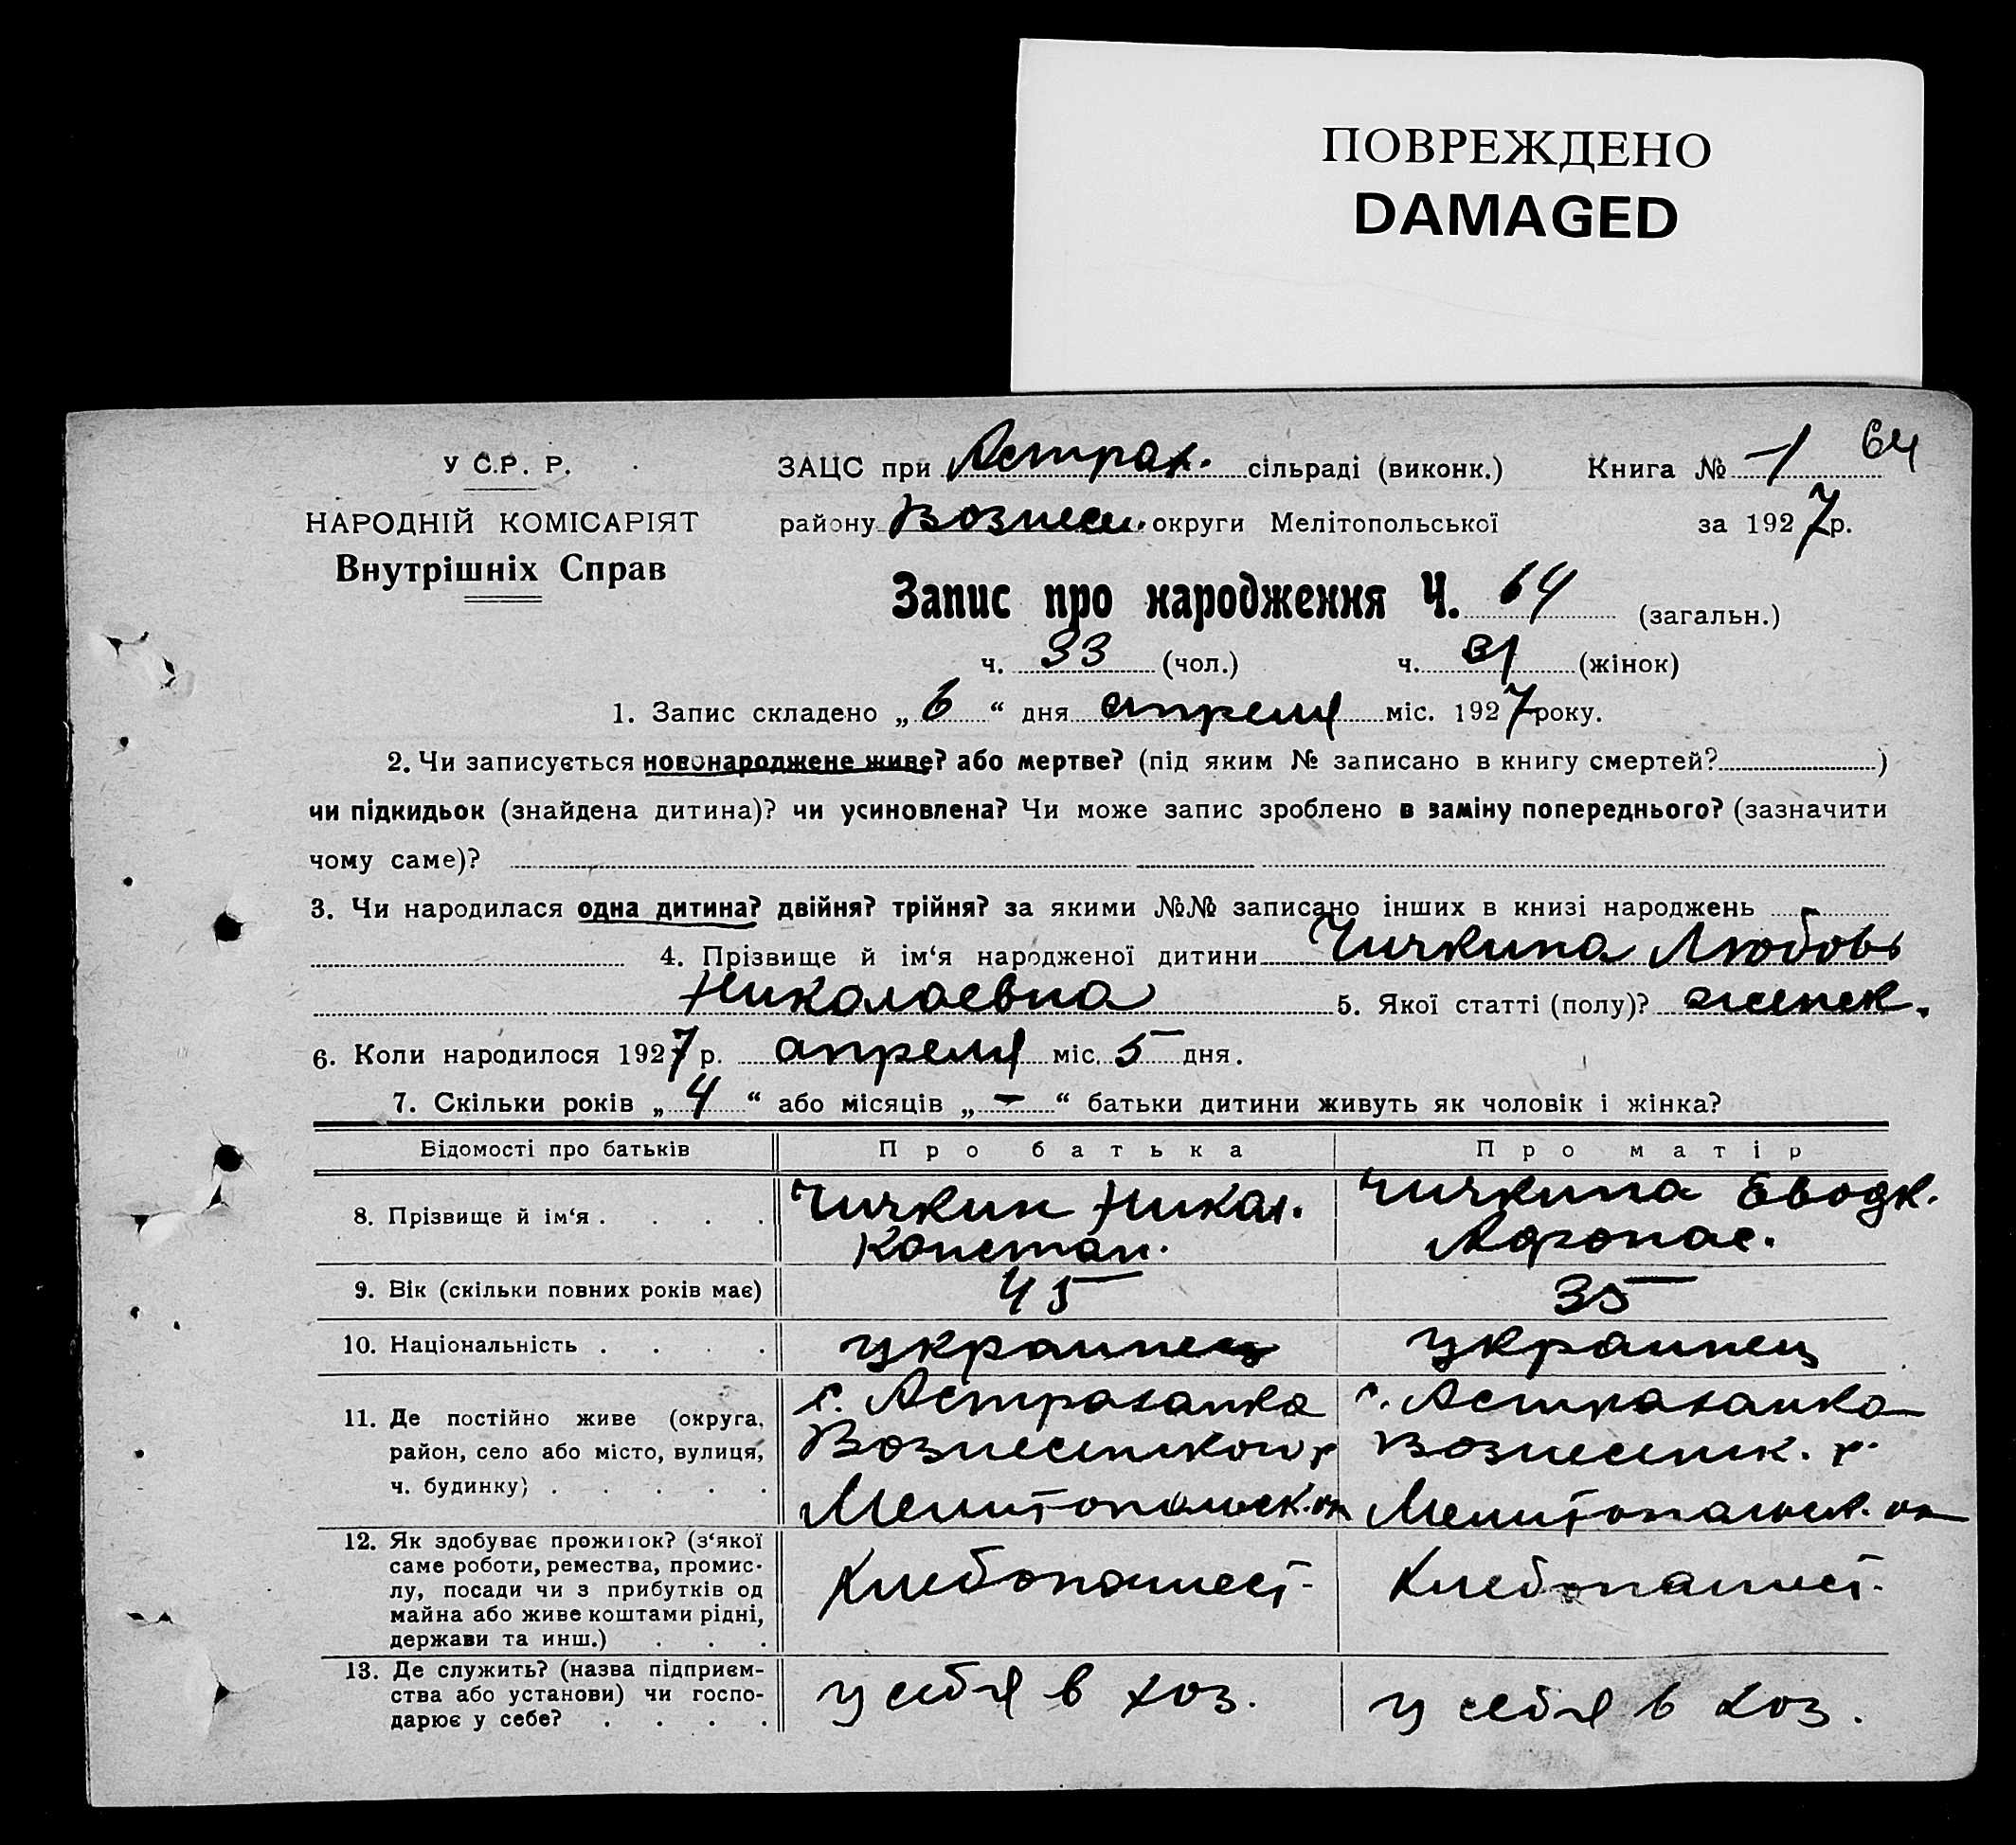 ПОВРЕЖДЕНО
DAMAGED
У С.Р. Р.
НАРОДНІЙ КОМІСАРІЯТ
Внутрішніх Справ
ЗАЦС при Астрах. сільраді (виконк.) Книга № 1 64
району Вознесен. округи Мелітопольської за 1927 р.
Запис про народження Ч. 64 (загальн.)
ч. 33 (чол.) ч. 31 (жінок)
1. Запис складено „ 6 “ дня апреля міс. 1927 року.
2. Чи записується новонароджене живе? або мертве? (під яким № записано в книгу смертей? )
чи підкидьок (знайдена дитина)? чи усиновлена? Чи може запис зроблено в заміну попереднього? (зазначити
чому саме)?
3. Чи народилася одна дитина? двійня? трійня? за якими №№ записано інших в книзі народжень
4. Прізвище й ім‘я народженої дитини Чичкина Любовь
Николаевна 5. Якої статті (полу)? женск.
6. Коли народилося 1927 р. апреля міс. 5 дня.
7. Скільки років „ 4 “ або місяців „ - “ батьки дитини живуть як чоловік і жінка?
Відомості про батьків Про батька Про матір
8. Прізвище й ім‘я . . . . Чичкин Никол. Чичкина Евдок.
Констан. Афонас.
9. Вік (скільки повних років має) 45 35
10. Національність . . . . украинец украинец
11. Де постійно живе (округа, с. Астраханка с. Астраханка
район, село або місто, вулиця, Вознесенского р Вознесенск. р.
ч. будинку) . . . . . Мелитопольск. ок Мелитопольск. ок
12. Як здобуває прожиток? (з‘якої
саме роботи, ремества, промис-
лу, посади чи з прибутків од Хлебопашест. Хлебопашест.
майна або живе коштами рідні,
держави та инш.) . . .
13. Де служить? (назва підприєм-
ства або установи) чи госпо- у себя в хоз. у себя в хоз.
дарює у себе? . . . .